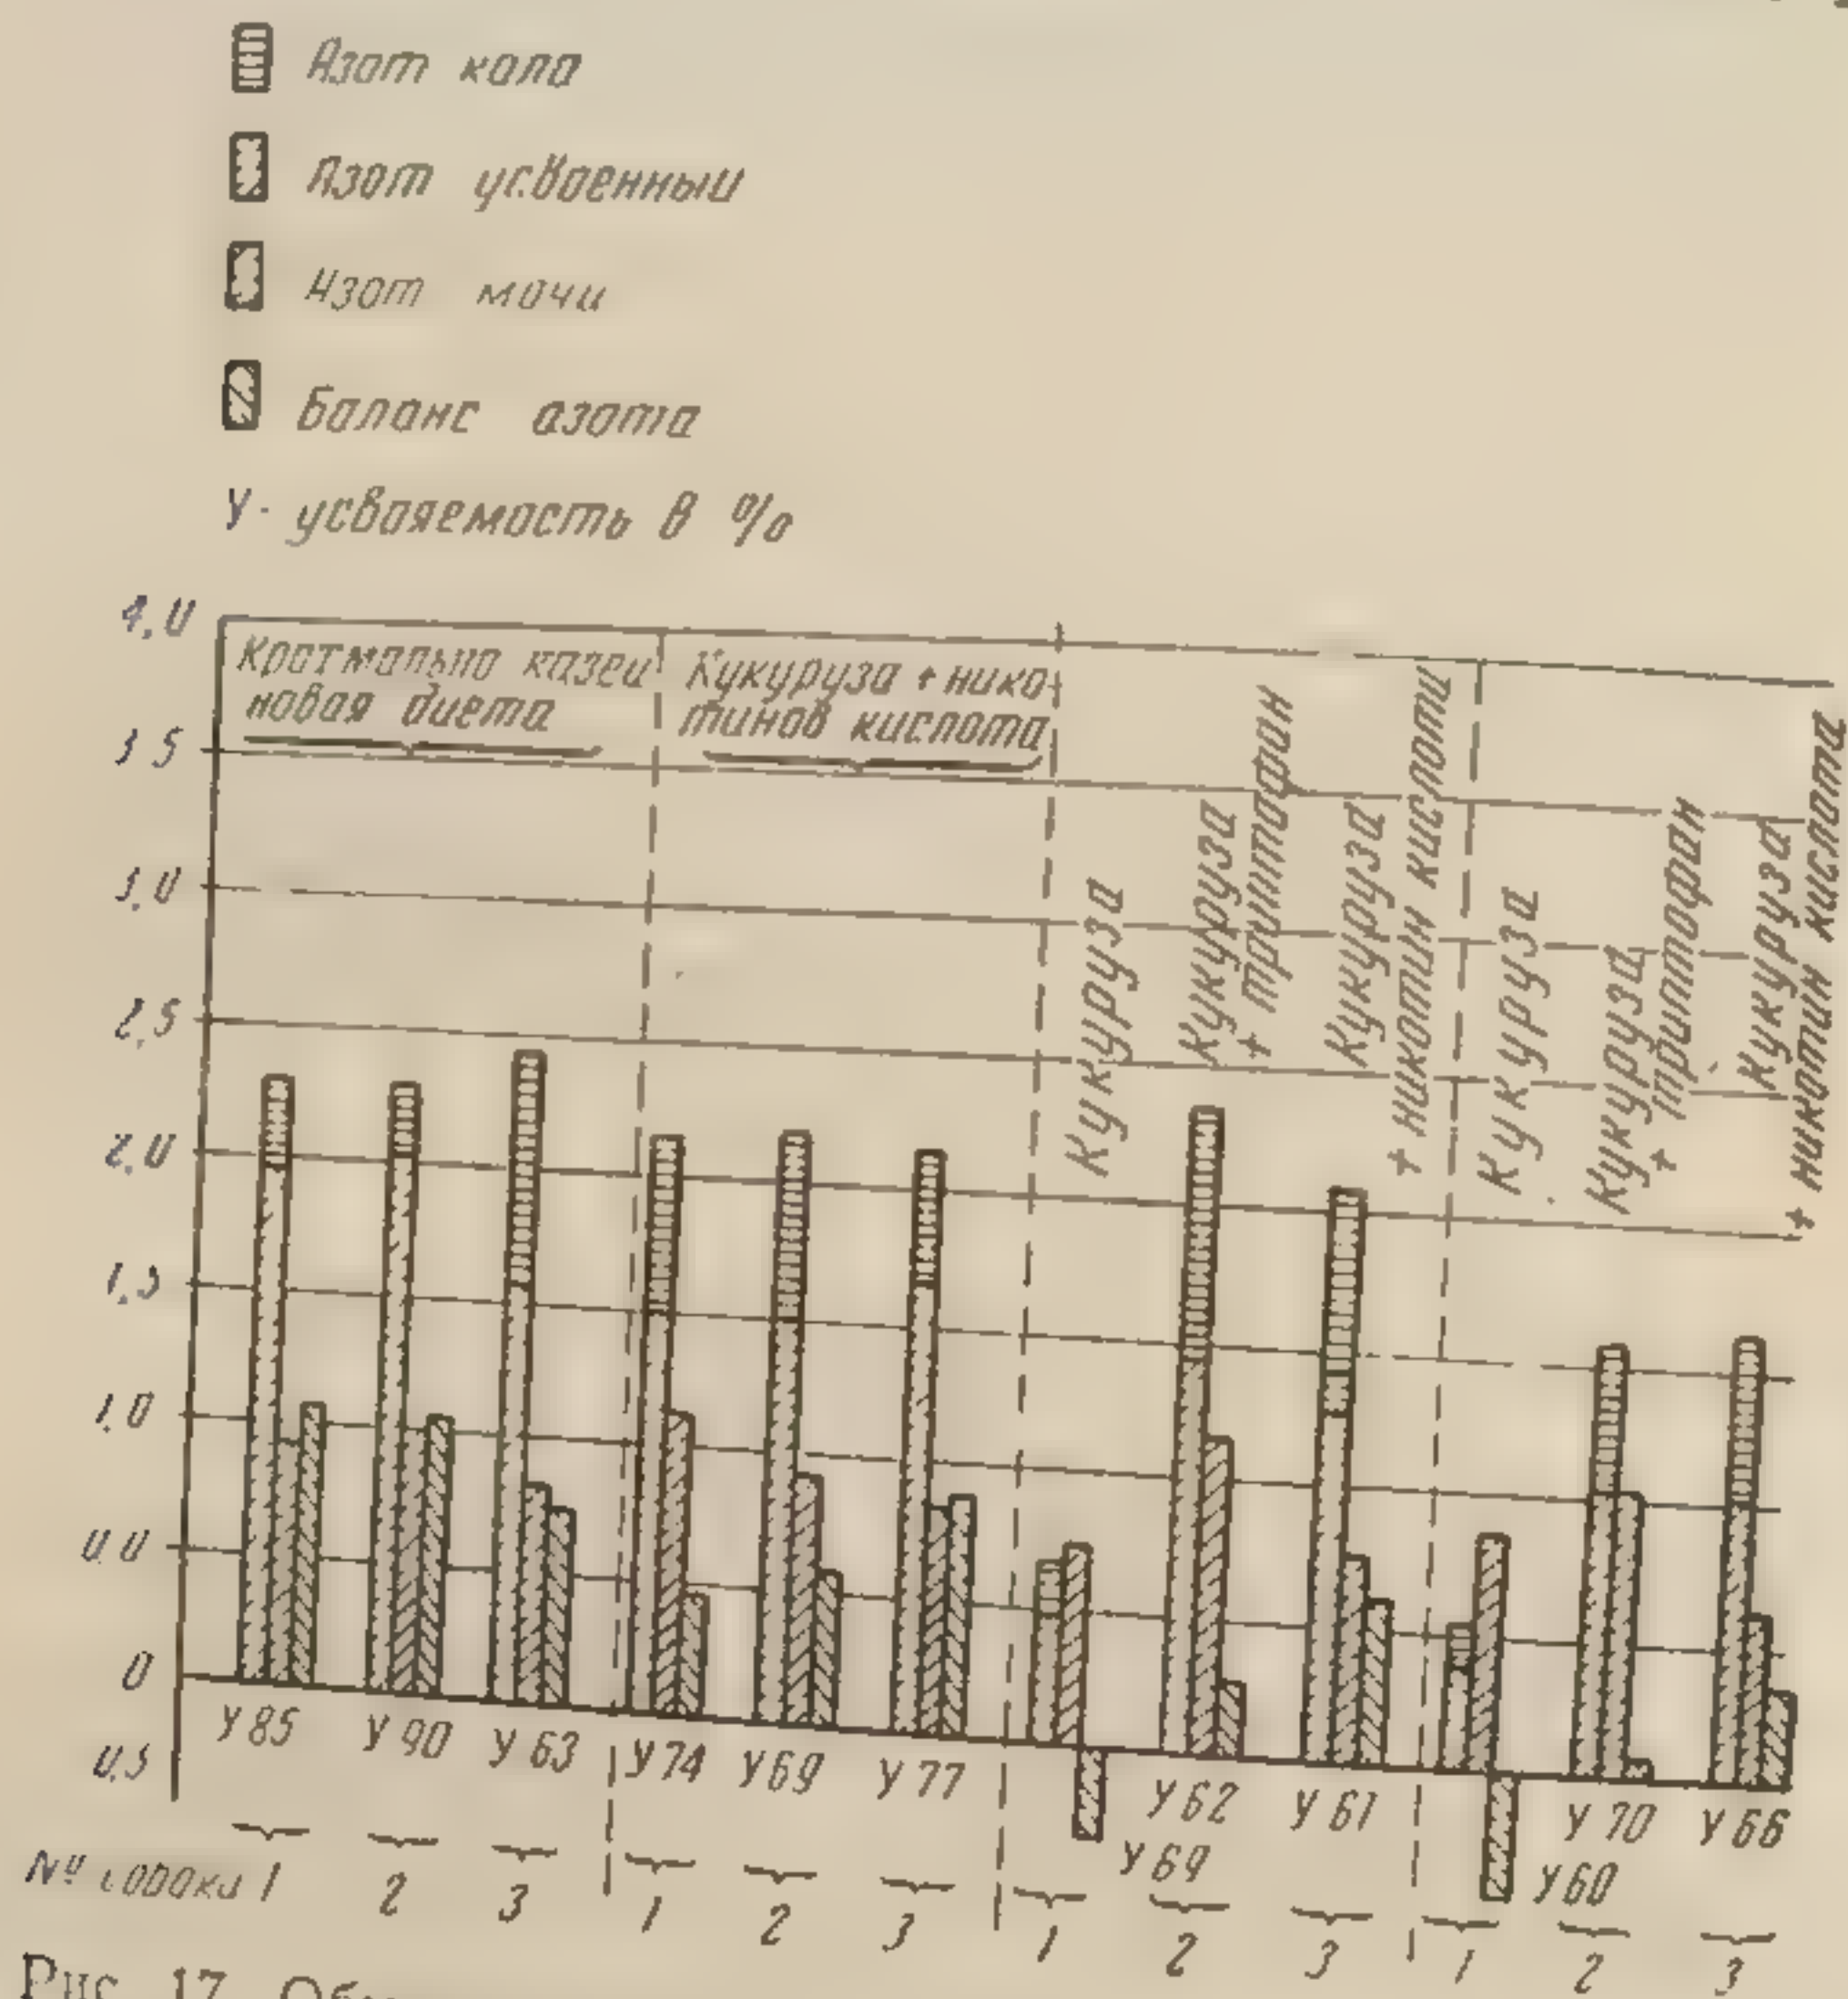 Азот кала
Азот усвоенный
Азот мочи
Баланс азота
У - усвояемость в %
4,0
Крахмально казеи
новая диета
Кукуруза + нико
тинов кислота
3,5
3,0
2,5
2,0
1,5
1,0
0
0,5
Кукуруза
Кукуруза
+ триптофан
Кукуруза
+ никотин кислота
Кукуруза
Кукуруза
+ триптофан
Кукуруза
+ никотин кислота
У 85 У 90 У 63 У 74 У 69 У 77 У 69 У 62 У 61 У 60 У 70 У 66
№ собаки 1 2 3 1 2 3 1 2 3 1 2 3
Рис. 17.